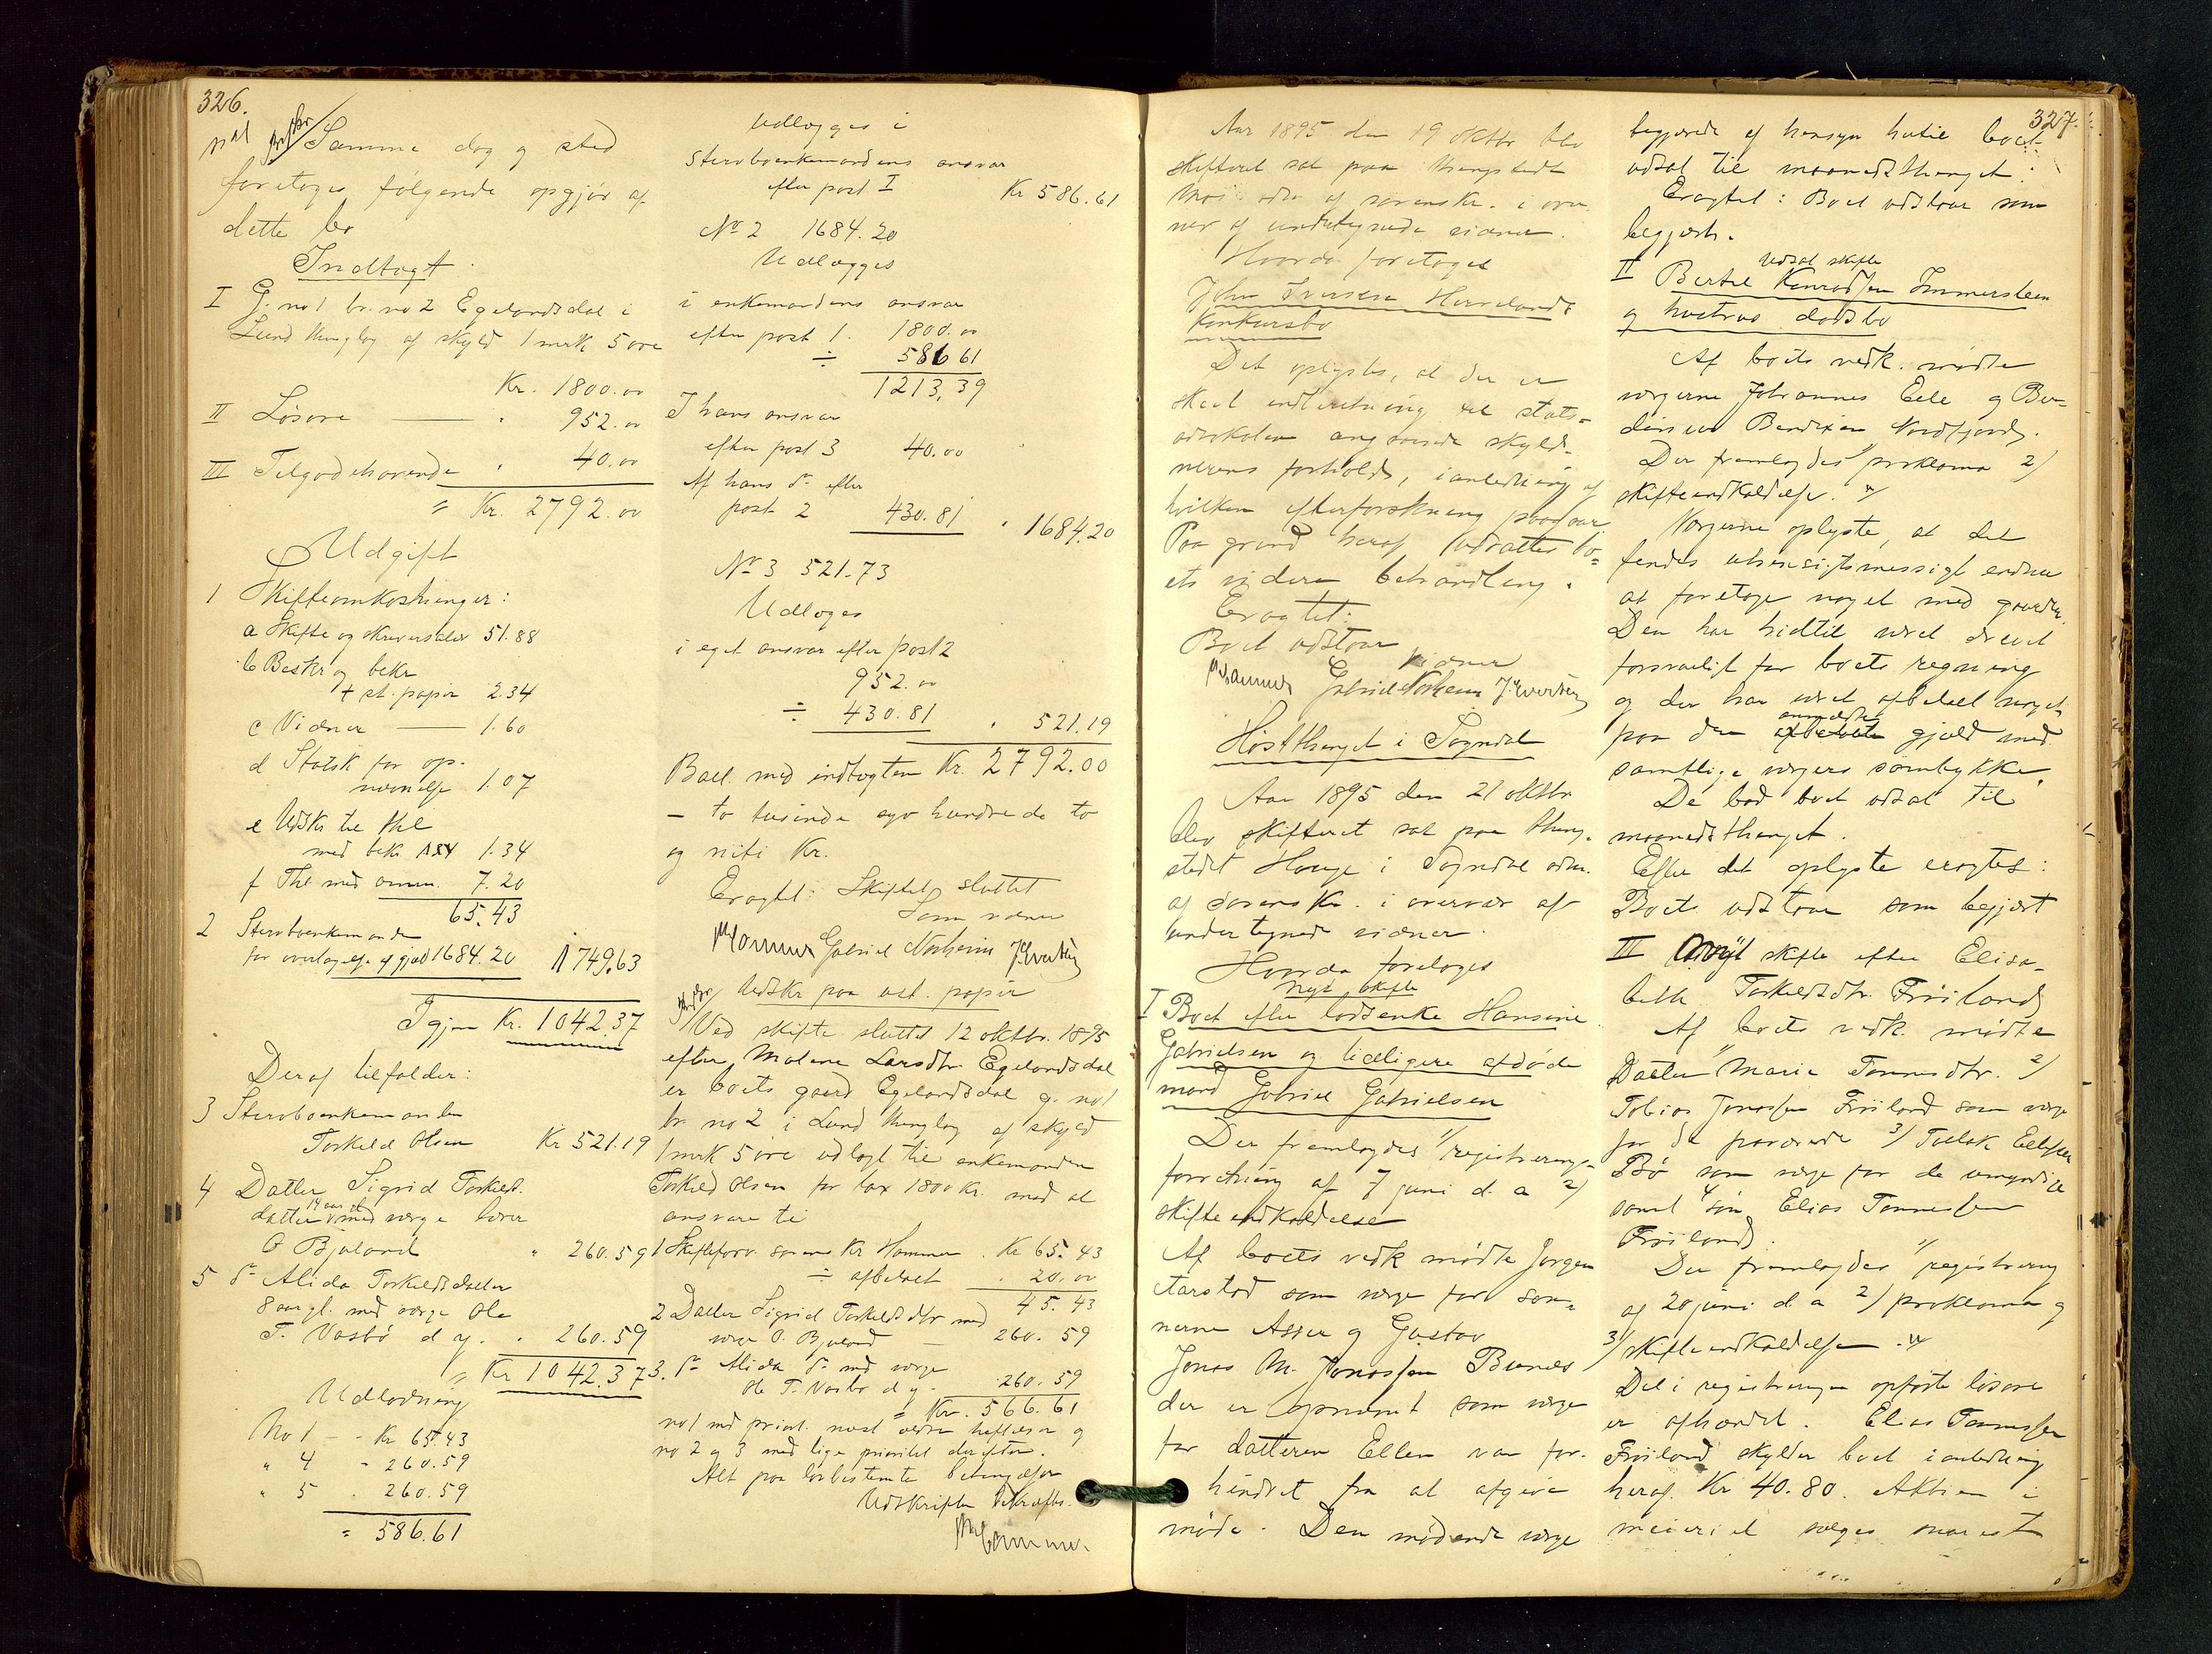 326.
Samme dag og sted
foretoges følgende opgjør af
dette bo
Indtægt
I G. no 1 br. no 2 Egelandsdal i
Lund thinglag af skyld 1 mrk 5 øre
Kr. 1800.00
II Løsøre — " 952.00
III Tilgodehavende " 40.00
= Kr. 2792.00
Udgift
1 Skifteomkostninger:
a Skifte og skriversalær 51.88
b Beskr og bekr
+ st. papir 2.34
c Vidner — 1.60
d Statsk for op-
nævnelse 1.07
e Udskr til thl
med bekr 1.34
f Thl med anm. 7.20
65.43
2 Stervboenkemanden
for overtagelse af gjæld 1684.20 1749.63
Igjen Kr. 1042.37
Deraf tilfalder:
3 Stervboenkemanden
Torkild Olsen Kr 521.19
4 Datter Sigrid Torkilds-
datter 14 aar gl med værge lærer
O Bjuland " 260.59
5 do Alida Torkildsdatter
8 aar gl. med værge Ole
T. Vasbø d y. . 260.59
= Kr 1042.37
Udlodning
No 1 - - Kr 65.43
" 4 - 260.59
" 5 . 260.59
= 586.61
Udlægges i
Stervboenkemandens ansvar
efter post I
Kr 586.61
No 2 1684.20
Udlægges
i enkemandens ansvar
efter post 1. 1800.00
÷ 586 61
1213,39
I hans ansvar
efter post 3 40.00
Af hans do efter
post 2 430.81 " 1684.20
No 3 521.73
Udlæges
i eget ansvar efter post 2
952.00
÷ 430.81 " 521.19
Bal. med indtægten Kr. 2792.00
— to tusinde syv hundrede to
og niti Kr.
Eragtet: Skiftet sluttet
Som vidner
Hammer Gabriel Norheim J. Evertsen
Udskr paa ust. papir
Ved skifte sluttet 12 oktbr. 1895
efter Malene Larsdtr Egelandsdal
er boets gaard Egelandsdal g. no 1
br. no 2 i Lund thinglag af skyld
1 mrk 5 øre udlagt til enkemanden
Torkild Olsen for tax 1800 Kr. med at
ansvare til
1 Skifteforv. sorenskr Hammer . Kr 65.43
÷ afbetalt . 20.00
45.43
2 Datter Sigrid Torkildsdtr med
værge O. Bjuland — 260.59
3. do Alida do med værge
Ole T. Vasbø d y. 260.59
= Kr. 566.61
no 1 med priorit. næst ældre heftelser og
no 2 og 3 med lige prioritet derefter.
Alt paa lovbestemte betingelser
Udskriften bekræftes.
Hammer
327.
Aar 1895 den 19 oktbr blev
skifteret sat paa thingstedet
Moi adm af sorenskr. i over-
vær af undertegnede vidner.
Hvorda foretoges
John Iversen Hovlands
Konkursbo
Det oplystes, at der er
skeet indberetning til stats-
advokaten angaaende skyld-
nerens forhold, i anledning af
hvilken efterforskning paagaar
Paa grund heraf udsattes bo-
ets videre behandling.
Eragtet:
Boet udstaar
Vidner
Hammer Gabriel Norheim J. Evertsen
Høstthinget i Sogndal
Aar 1895 den 21 oktbr
blev skifteret sat paa thing-
stedet Hauge i Sogndal adm.
af sorenskr. i overvær af
undertegnede vidner.
Hvorda foretoges
nyt skifte
I Boet efter lodsenke Hansine
Gabrielsen og tidligere afdøde
mand Gabriel Gabrielsen
Der fremlagdes 1/ registrerings-
forretning af 7 juni d. a 2/
skifteindkaldelse
Af boets vedk mødte Jørgen
Aarstad som værge for søn-
nerne Asser og Gustav
Jonas M. Jonassen Buenes
der er opnævnt som værge
for datteren Ellen var for-
hindret fra at afgive
møde. Den mødende værge
begjærede af hensyn hertil boet
udsat til maanedsthinget.
Eragtet: Boet udstaar som
begjært.
Udsat skifte
II Bertel Konradsen Immersteen
og hustrus dødsbo
Af boets vedk. mødte
værgerne Johannes Eele og Ber-
dinius Bendixen Nordfjord.
Der fremlagdes 1/ proklama 2/
skifteindkaldelse.
Værgerne oplyste, at det
fandtes uhensigtsmessigt endnu
at foretage noget med gaarden.
Den har hidtil været drevet
forsvarligt for boets regning
og der har været afbetalt noget
paa den anmeldte gjæld med
samtlige værgers samtykke.
De bad boet udsat til
maanedsthinget.
Efter det oplyste eragtes:
Boet udstaar som begjært
III Nyt skifte efter Elisa-
beth Torkildsdtr. Frøiland
Af boets vedk mødte
Datter 1/ Marie Tønnesdtr. 2/
Tobias Jonassen Frøiland som værge
for de fraværende 3/ Tollak Eliassen
Bø som værge for de umyndige
samt 4 søn Elias Tønnessen
Frøiland.
Der fremlagdes 1/ registrering
af 20 juni d. a 2/ proklama og
3/ skifteindkaldelse.
Det i registreringen opførte løsøre
er afhændet. Elias Tønnessen
Frøiland skylder boet i anledning
heraf Kr 40.80. Aktien i
meieriet sælges snarest